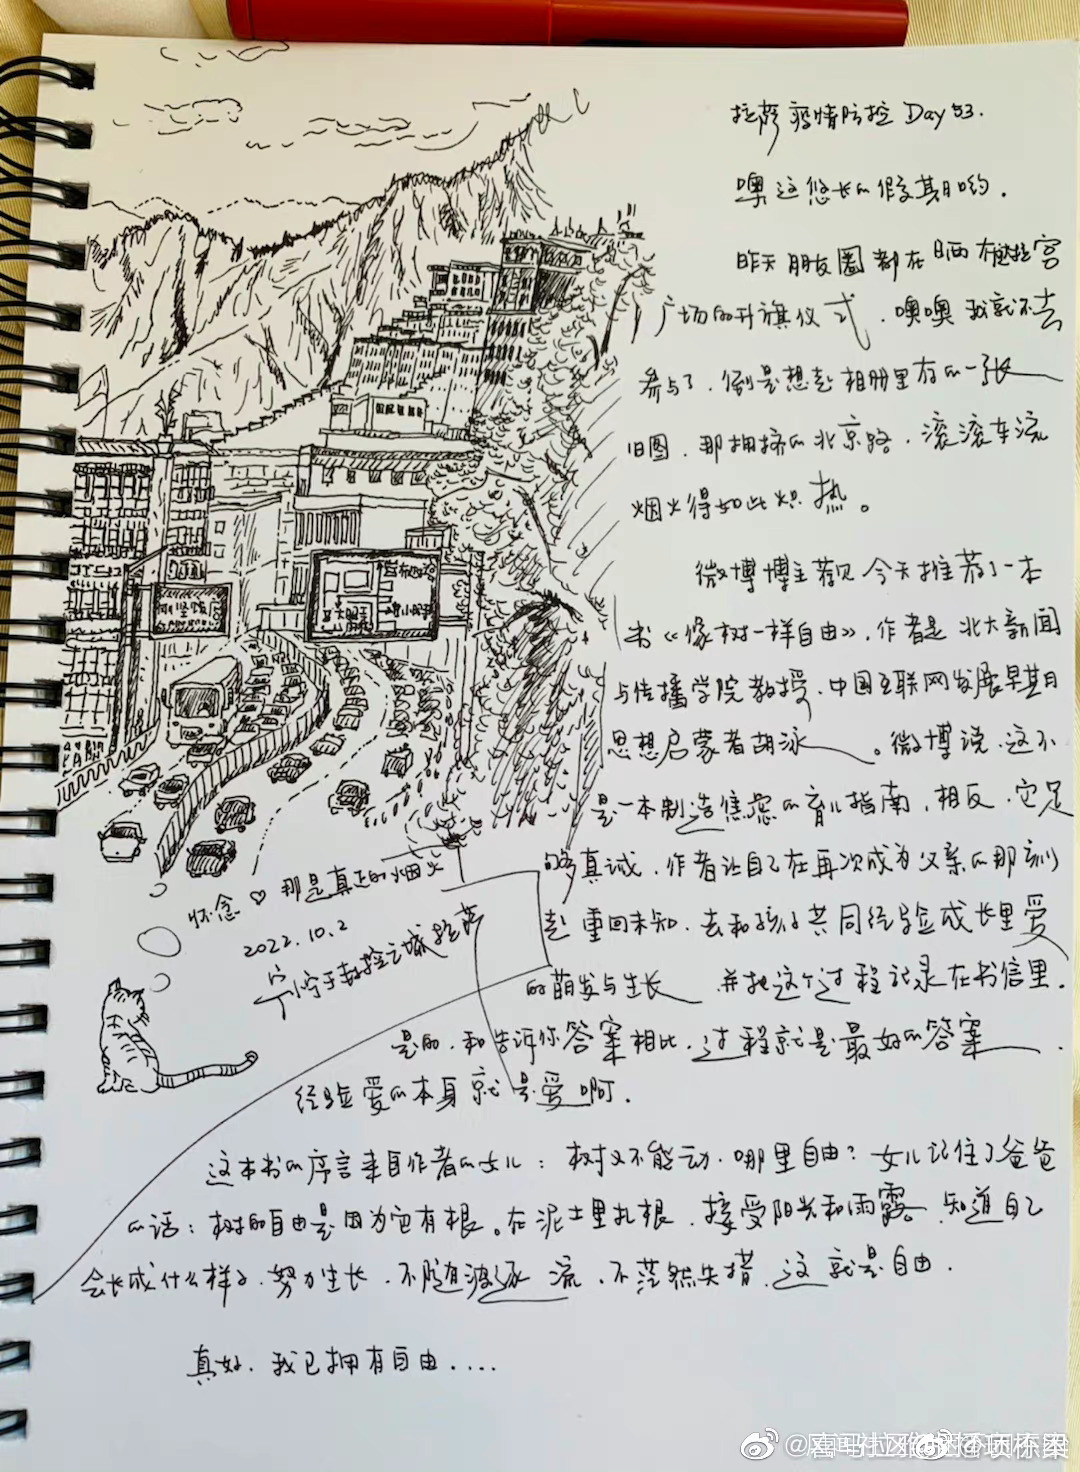 拉萨疫情防控 Day 53.
噢这悠长的假期哟.
昨天朋友圈都在晒布达拉宫
广场的升旗仪式,噢噢我就不去
参与了,倒是想起相册里存的一张
旧图,那拥挤的北京路,滚滚车流
烟火得如此炽热。
微博博主 今天推荐了一本
书《像树一样自由》,作者是北大新闻
与传播学院教授,中国互联网发展早期
思想启蒙者胡泳。微博说,这不
是一本制造焦虑的育儿指南,相反,它足
够真诚,作者让自己在再次成为父亲的那刻
起重回未知,去和孩子共同经验成长里爱
的萌发与生长 并把这个过程记录在书信里.
是的,和告诉你答案相比,过程就是最好的答案.
经验爱的本身就是爱啊.
这本书的序言来自作者的女儿:树又不能动,哪里自由?女儿记住了爸爸
的话:树的自由是因为它有根。在泥土里扎根,接受阳光和雨露,知道自己
会长成什么样子,努力生长,不随波逐流,不茫然失措,这就是自由.
真好,我已拥有自由....
怀念♡那是真正的烟火
2022.10.2
小宁于 控之城拉萨